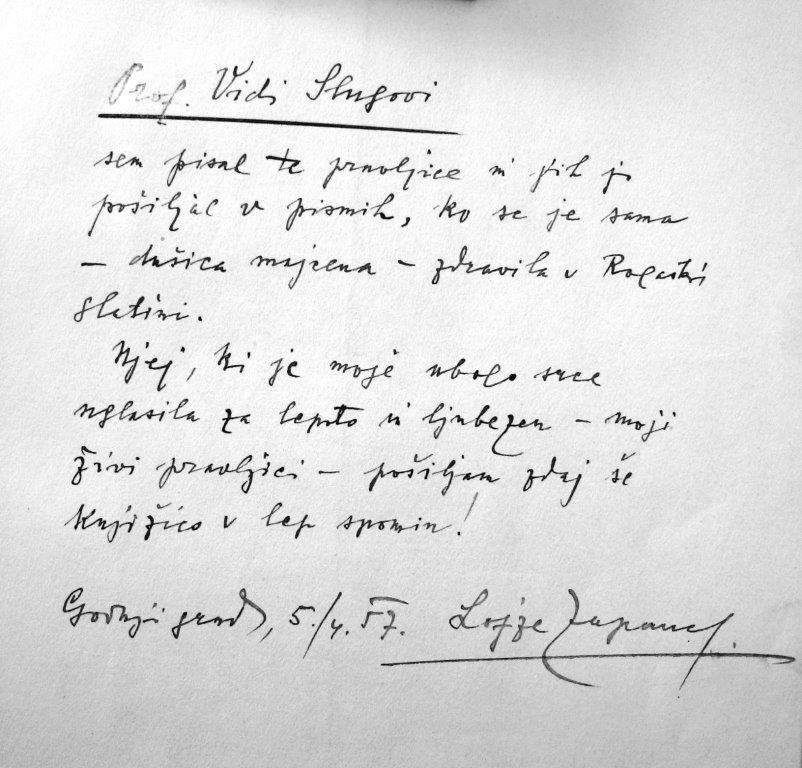 Prof. Vidi Slugovi
sem pisal te pravljice in jih ji
pošiljal v pismih, ko se je sama
– dušica majcena – zdravila v Rogaški
Slatini.
Njej, ki je moje ubogo srce
uglasila za lepoto in ljubezen – moji
živi pravljici – pošiljam zdaj še
knjižico v lep spomin!
Gornji grad, 5./4. 57. Lojze Zupanc.